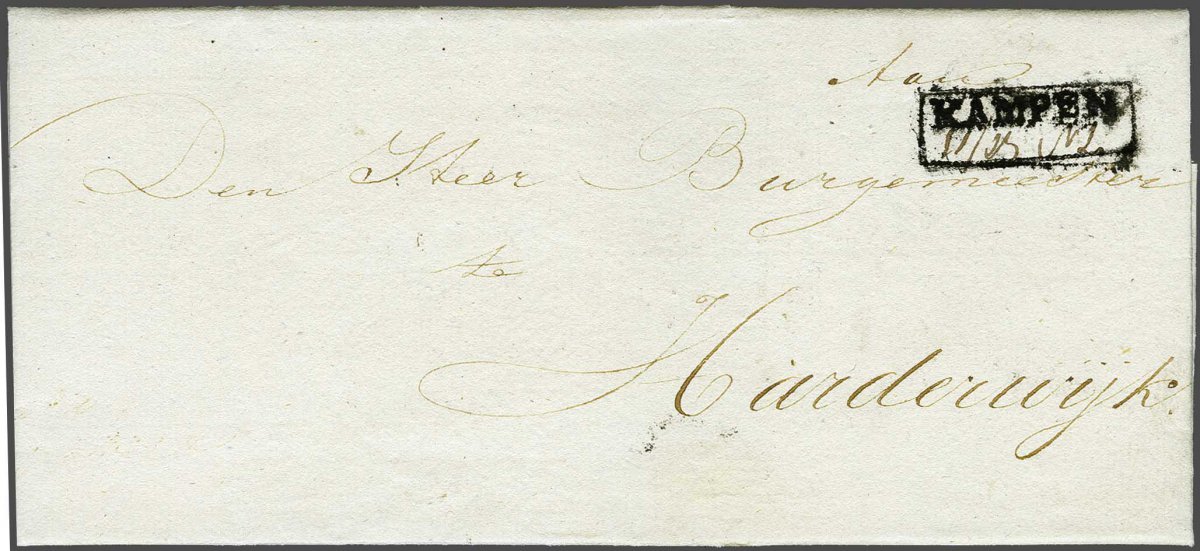 Aan
KAMPEN
Den Heer Burgemeester
te
Harderwijk.